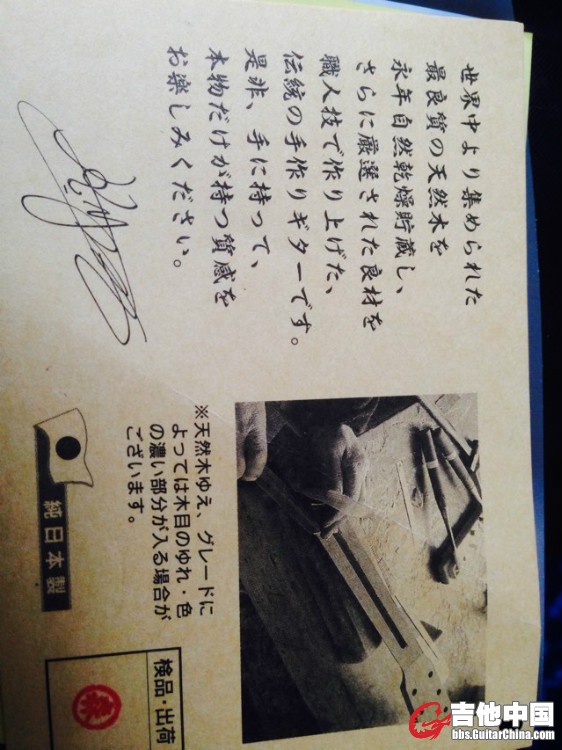 世界中より集められた
最良質の天然木を
永年自然乾燥貯蔵し、
さらに厳選された良材を
職人技で作り上げた、
伝統の手作りギターです。
是非、手に持って、
本物だけが持つ質感を
お楽しみください。
※天然木ゆえ、グレードに
よっては木目のゆれ・色
の濃い部分が入る場合が
ございます。
純日本製
検品・出荷
吉他中国
bbs.GuitarChina.com